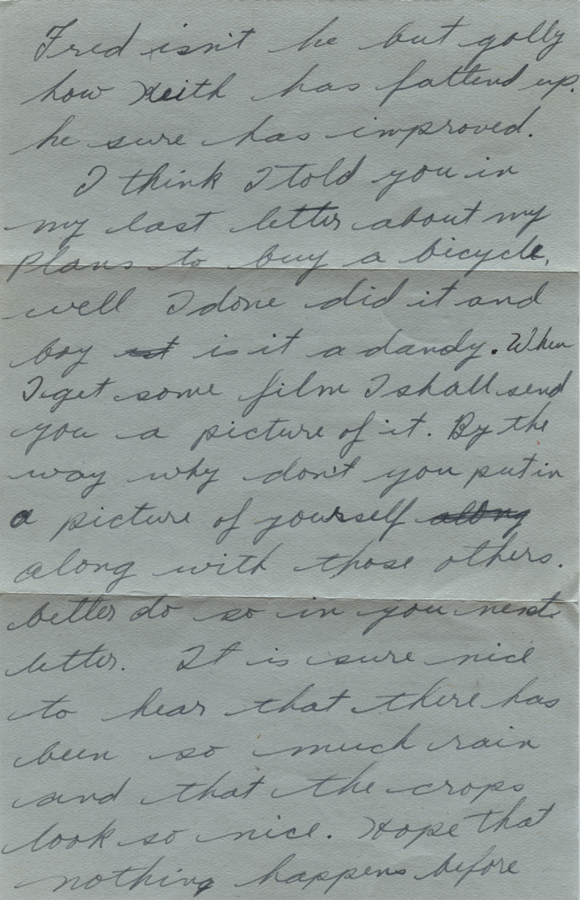 Fred isn't he but golly
how Keith has fattend up.
he sure has improved.
I think I told you in
my last letter about my
plans to buy a bicycle,
well I done did it and
boy is it a dandy. When
I get some film I shall send
you a picture of it. By the
way why don't you put in
a picture of yourself along
along with those others.
better do so in you next
letter. It is sure nice
to hear that there has
been so much rain
and that the crops
look so nice. Hope that
nothing happens before